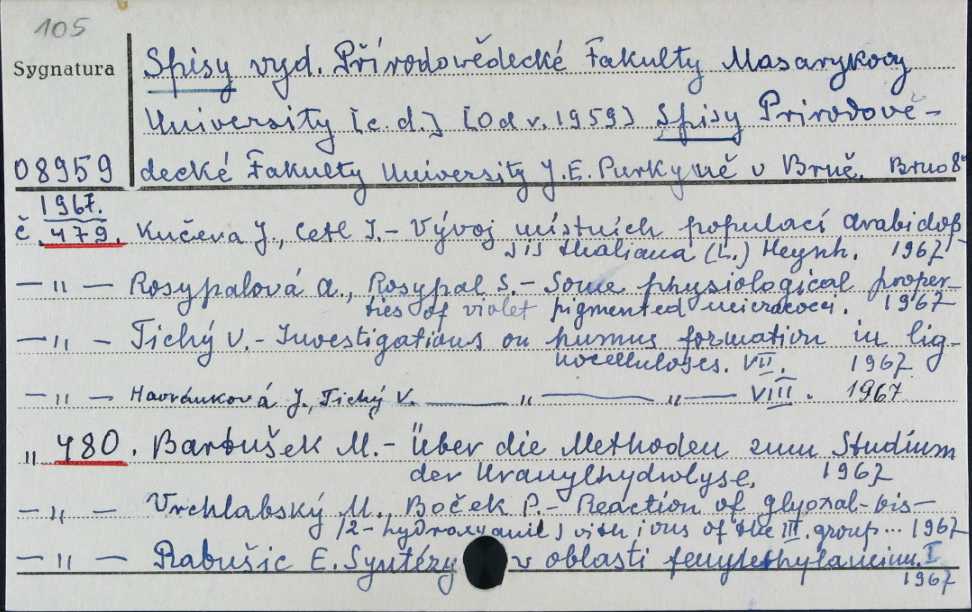 105
Sygnatura
Spisy vyd. Přírodovědecké Fakulty Masarykovy
University [c.d.] [Od r. 1959] Spisy Prirodově-
08959 decké Fakulty University J.E. Purkyně v Brně. Brno 8°
1967.
č. 479. Kučera J., Cetl I. - Vývoj místních populací arabidop-
sis thaliana (L.) Heynh. 1967
— " — Rosypalová A., Rosypal S. - Some physiological proper-
ties of violet pigmented micrococci. 1967
— " — Tichý V. - Investigations on humus formation in lig-
nocelluloses. VII. 1967
— " — Havránková J., Tichý V. — " — " — VIII. 1967
" 480. Bartušek M. - Über die Methoden zum Studium
der Uranylhydrolyse. 1967
— " — Vrchlabský M., Boček P. - Reaction of glyoxal-bis-
/2-hydroxyanil/ with ions of the III. group... 1967
— " — Rabušic E. Syntézy v oblasti fenylethylaminu. I
1967